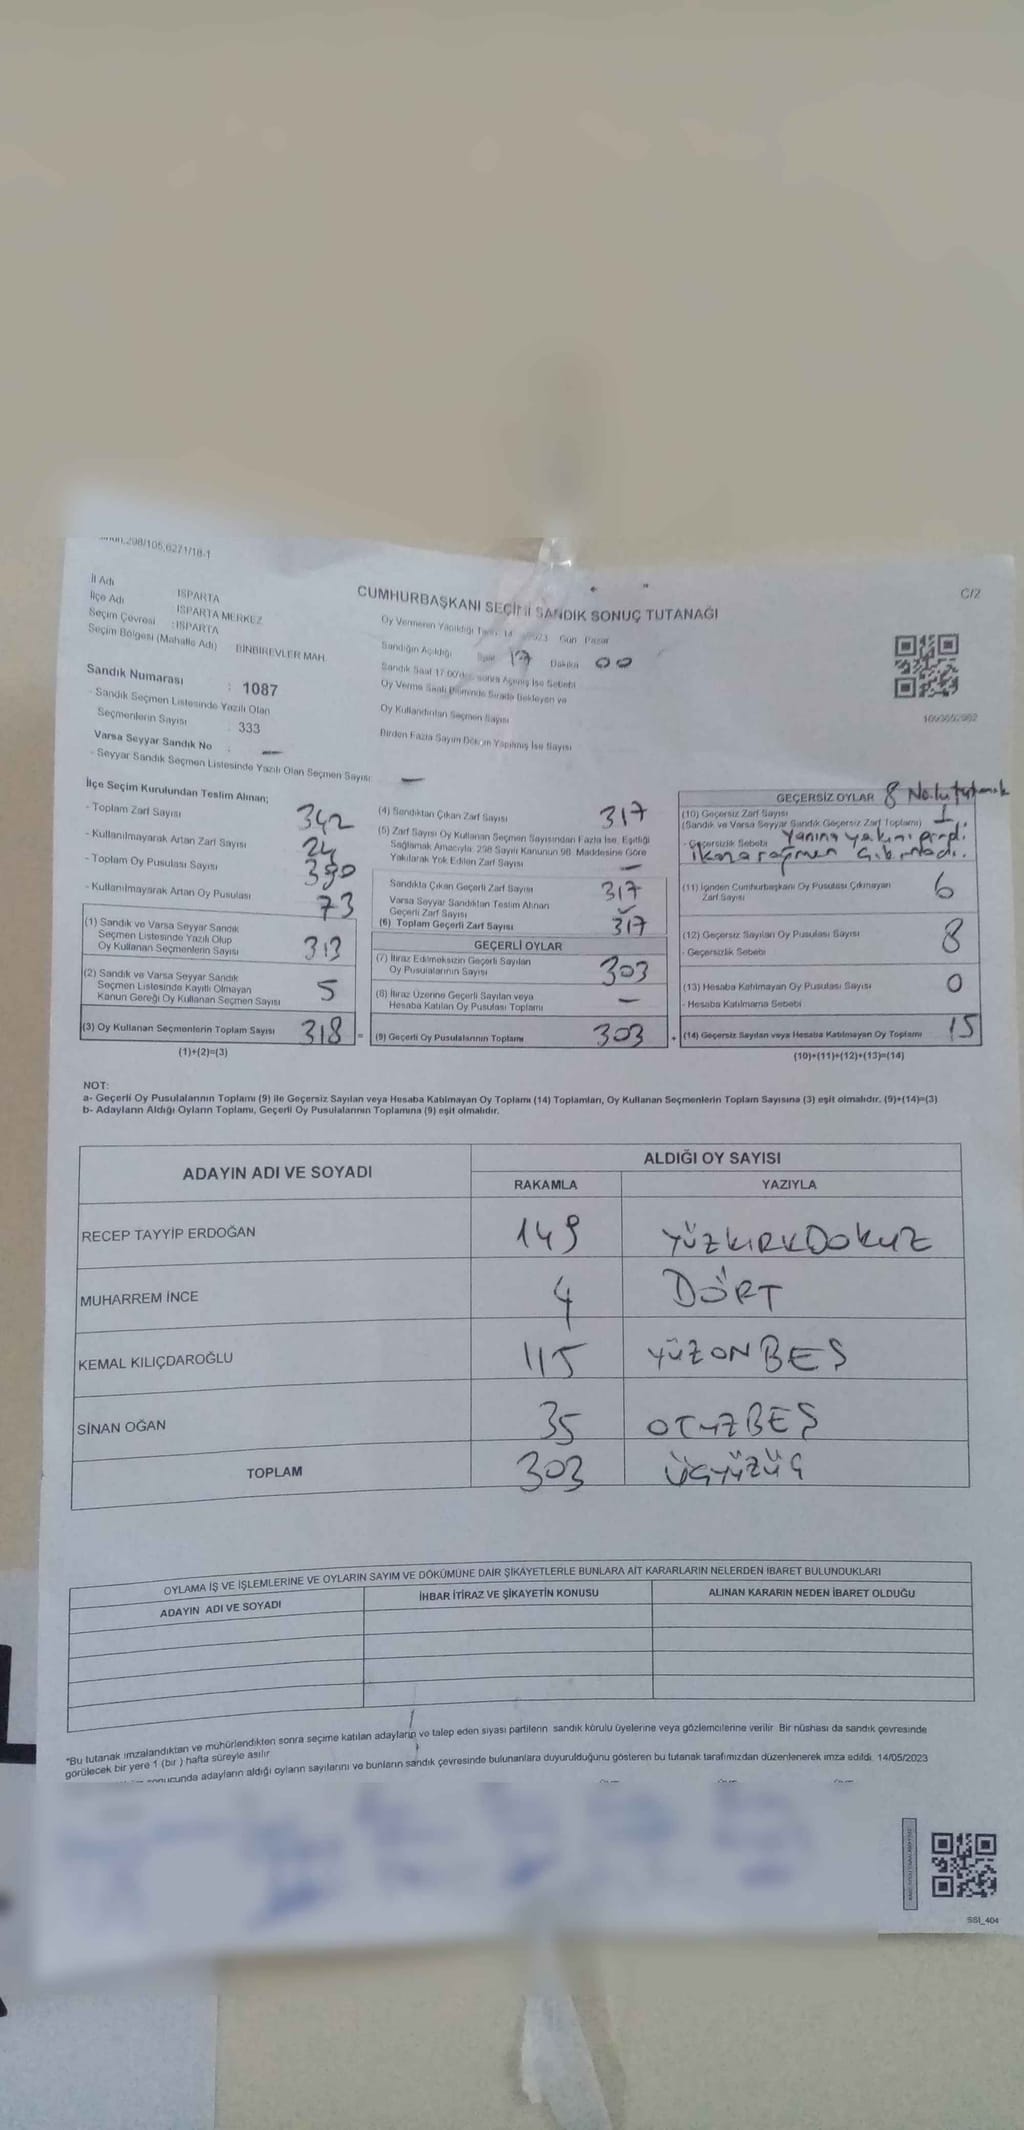 298/105,6271/18-1
C/2
İl Adı ISPARTA
İlçe Adı ISPARTA MERKEZ
Seçim Çevresi : ISPARTA
Seçim Bölgesi (Mahalle Adı) BİNBİREVLER MAH.
Sandık Numarası : 1087
- Sandık Seçmen Listesinde Yazılı Olan
Seçmenlerin Sayısı : 333
Varsa Seyyar Sandık No : —
- Seyyar Sandık Seçmen Listesinde Yazılı Olan Seçmen Sayısı: —
CUMHURBAŞKANI SEÇİMİ SANDIK SONUÇ TUTANAĞI
Oy Vermenin Yapıldığı 14 2023 Gün Pazar
Sandığın Açıldığı Saat 17 Dakika 00
Sandık Saat 17.00'den sonra Açılmış İse Sebebi
Oy Verme Saati Bitiminde Sırada Bekleyen ve
Oy Kullandırılan Seçmen Sayısı
Birden Fazla Sayım Döküm Yapılmış İse Sayısı
İlçe Seçim Kurulundan Teslim Alınan;
- Toplam Zarf Sayısı 342
- Kullanılmayarak Artan Zarf Sayısı 24
- Toplam Oy Pusulası Sayısı 390
- Kullanılmayarak Artan Oy Pusulası 73
(1) Sandık ve Varsa Seyyar Sandık
Seçmen Listesinde Yazılı Olup
Oy Kullanan Seçmenlerin Sayısı 313
(2) Sandık ve Varsa Seyyar Sandık
Seçmen Listesinde Kayıtlı Olmayan
Kanun Gereği Oy Kullanan Seçmen Sayısı 5
(3) Oy Kullanan Seçmenlerin Toplam Sayısı 318 =
(1)+(2)=(3)
(4) Sandıktan Çıkan Zarf Sayısı 317
(5) Zarf Sayısı Oy Kullanan Seçmen Sayısından Fazla İse, Eşitliği
Sağlamak Amacıyla, 298 Sayılı Kanunun 98. Maddesine Göre
Yakılarak Yok Edilen Zarf Sayısı —
Sandıkta Çıkan Geçerli Zarf Sayısı 317
Varsa Seyyar Sandıktan Teslim Alınan
Geçerli Zarf Sayısı —
(6) Toplam Geçerli Zarf Sayısı 317
GEÇERLİ OYLAR
(7) İtiraz Edilmeksizin Geçerli Sayılan
Oy Pusulalarının Sayısı 303
(8) İtiraz Üzerine Geçerli Sayılan veya
Hesaba Katılan Oy Pusulası Toplamı —
(9) Geçerli Oy Pusulalarının Toplamı 303 +
GEÇERSİZ OYLAR 8 No.lu tutanak
(10) Geçersiz Zarf Sayısı
(Sandık ve Varsa Seyyar Sandık Geçersiz Zarf Toplamı) 1
- Geçersizlik Sebebi
(11) İçinden Cumhurbaşkanı Oy Pusulası Çıkmayan
Zarf Sayısı 6
(12) Geçersiz Sayılan Oy Pusulası Sayısı 8
- Geçersizlik Sebebi
(13) Hesaba Katılmayan Oy Pusulası Sayısı 0
- Hesaba Katılmama Sebebi
(14) Geçersiz Sayılan veya Hesaba Katılmayan Oy Toplamı 15
(10)+(11)+(12)+(13)=(14)
NOT:
a- Geçerli Oy Pusulalarının Toplamı (9) ile Geçersiz Sayılan veya Hesaba Katılmayan Oy Toplamı (14) Toplamları, Oy Kullanan Seçmenlerin Toplam Sayısına (3) eşit olmalıdır. (9)+(14)=(3)
b- Adayların Aldığı Oyların Toplamı, Geçerli Oy Pusulalarının Toplamına (9) eşit olmalıdır.
ADAYIN ADI VE SOYADI ALDIĞI OY SAYISI
RAKAMLA YAZIYLA
RECEP TAYYİP ERDOĞAN 149 YÜZKIRKDOKUZ
MUHARREM İNCE 4 DÖRT
KEMAL KILIÇDAROĞLU 115 YÜZONBEŞ
SİNAN OĞAN 35 OTUZBEŞ
TOPLAM 303 ÜÇYÜZÜÇ
OYLAMA İŞ VE İŞLEMLERİNE VE OYLARIN SAYIM VE DÖKÜMÜNE DAİR ŞİKAYETLERLE BUNLARA AİT KARARLARIN NELERDEN İBARET BULUNDUKLARI
ADAYIN ADI VE SOYADI İHBAR İTİRAZ VE ŞİKAYETİN KONUSU ALINAN KARARIN NEDEN İBARET OLDUĞU
"Bu tutanak imzalandıktan ve mühürlendikten sonra seçime katılan adayların ve talep eden siyasi partilerin sandık kurulu üyelerine veya gözlemcilerine verilir Bir nüshası da sandık çevresinde
görülecek bir yere 1 (bir ) hafta süreyle asılır
sonucunda adayların aldığı oyların sayılarını ve bunların sandık çevresinde bulunanlara duyurulduğunu gösteren bu tutanak tarafımızdan düzenlenerek imza edildi. 14/05/2023
SSI_404